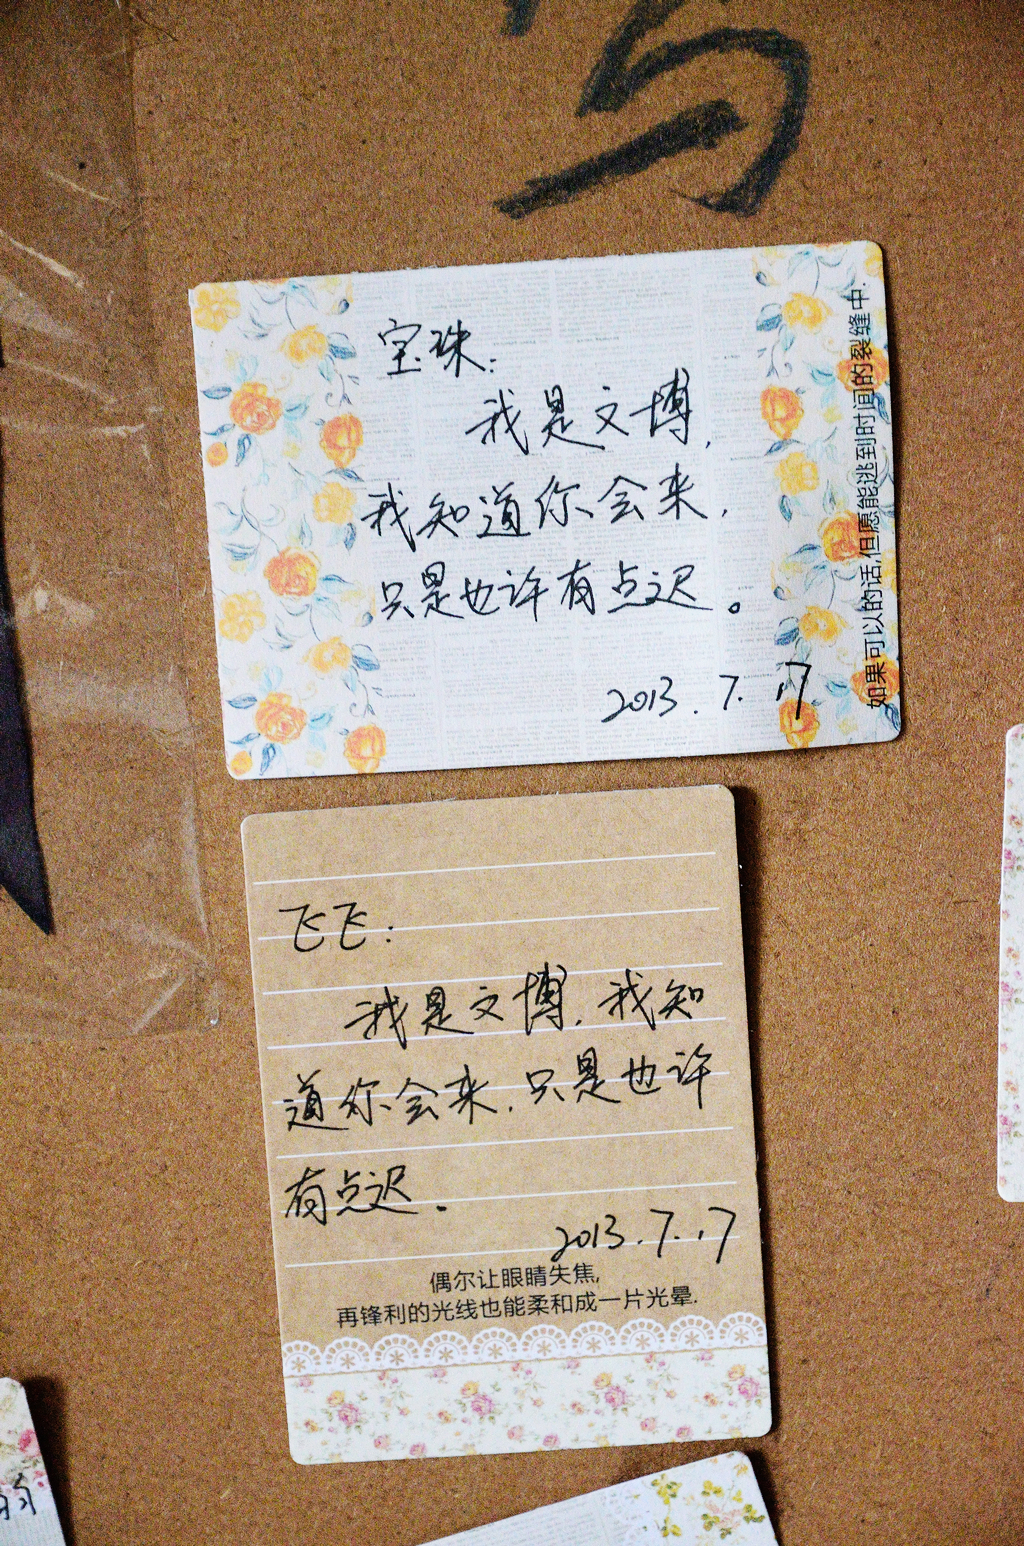 写
宝珠：
我是文博，
我知道你会来，
只是也许有点迟。
2013.7.17
如果可以的话,但愿能逃到时间的裂缝中.
飞飞：
我是文博，我知
道你会来，只是也许
有点迟。
2013.7.17
偶尔让眼睛失焦,
再锋利的光线也能柔和成一片光晕.